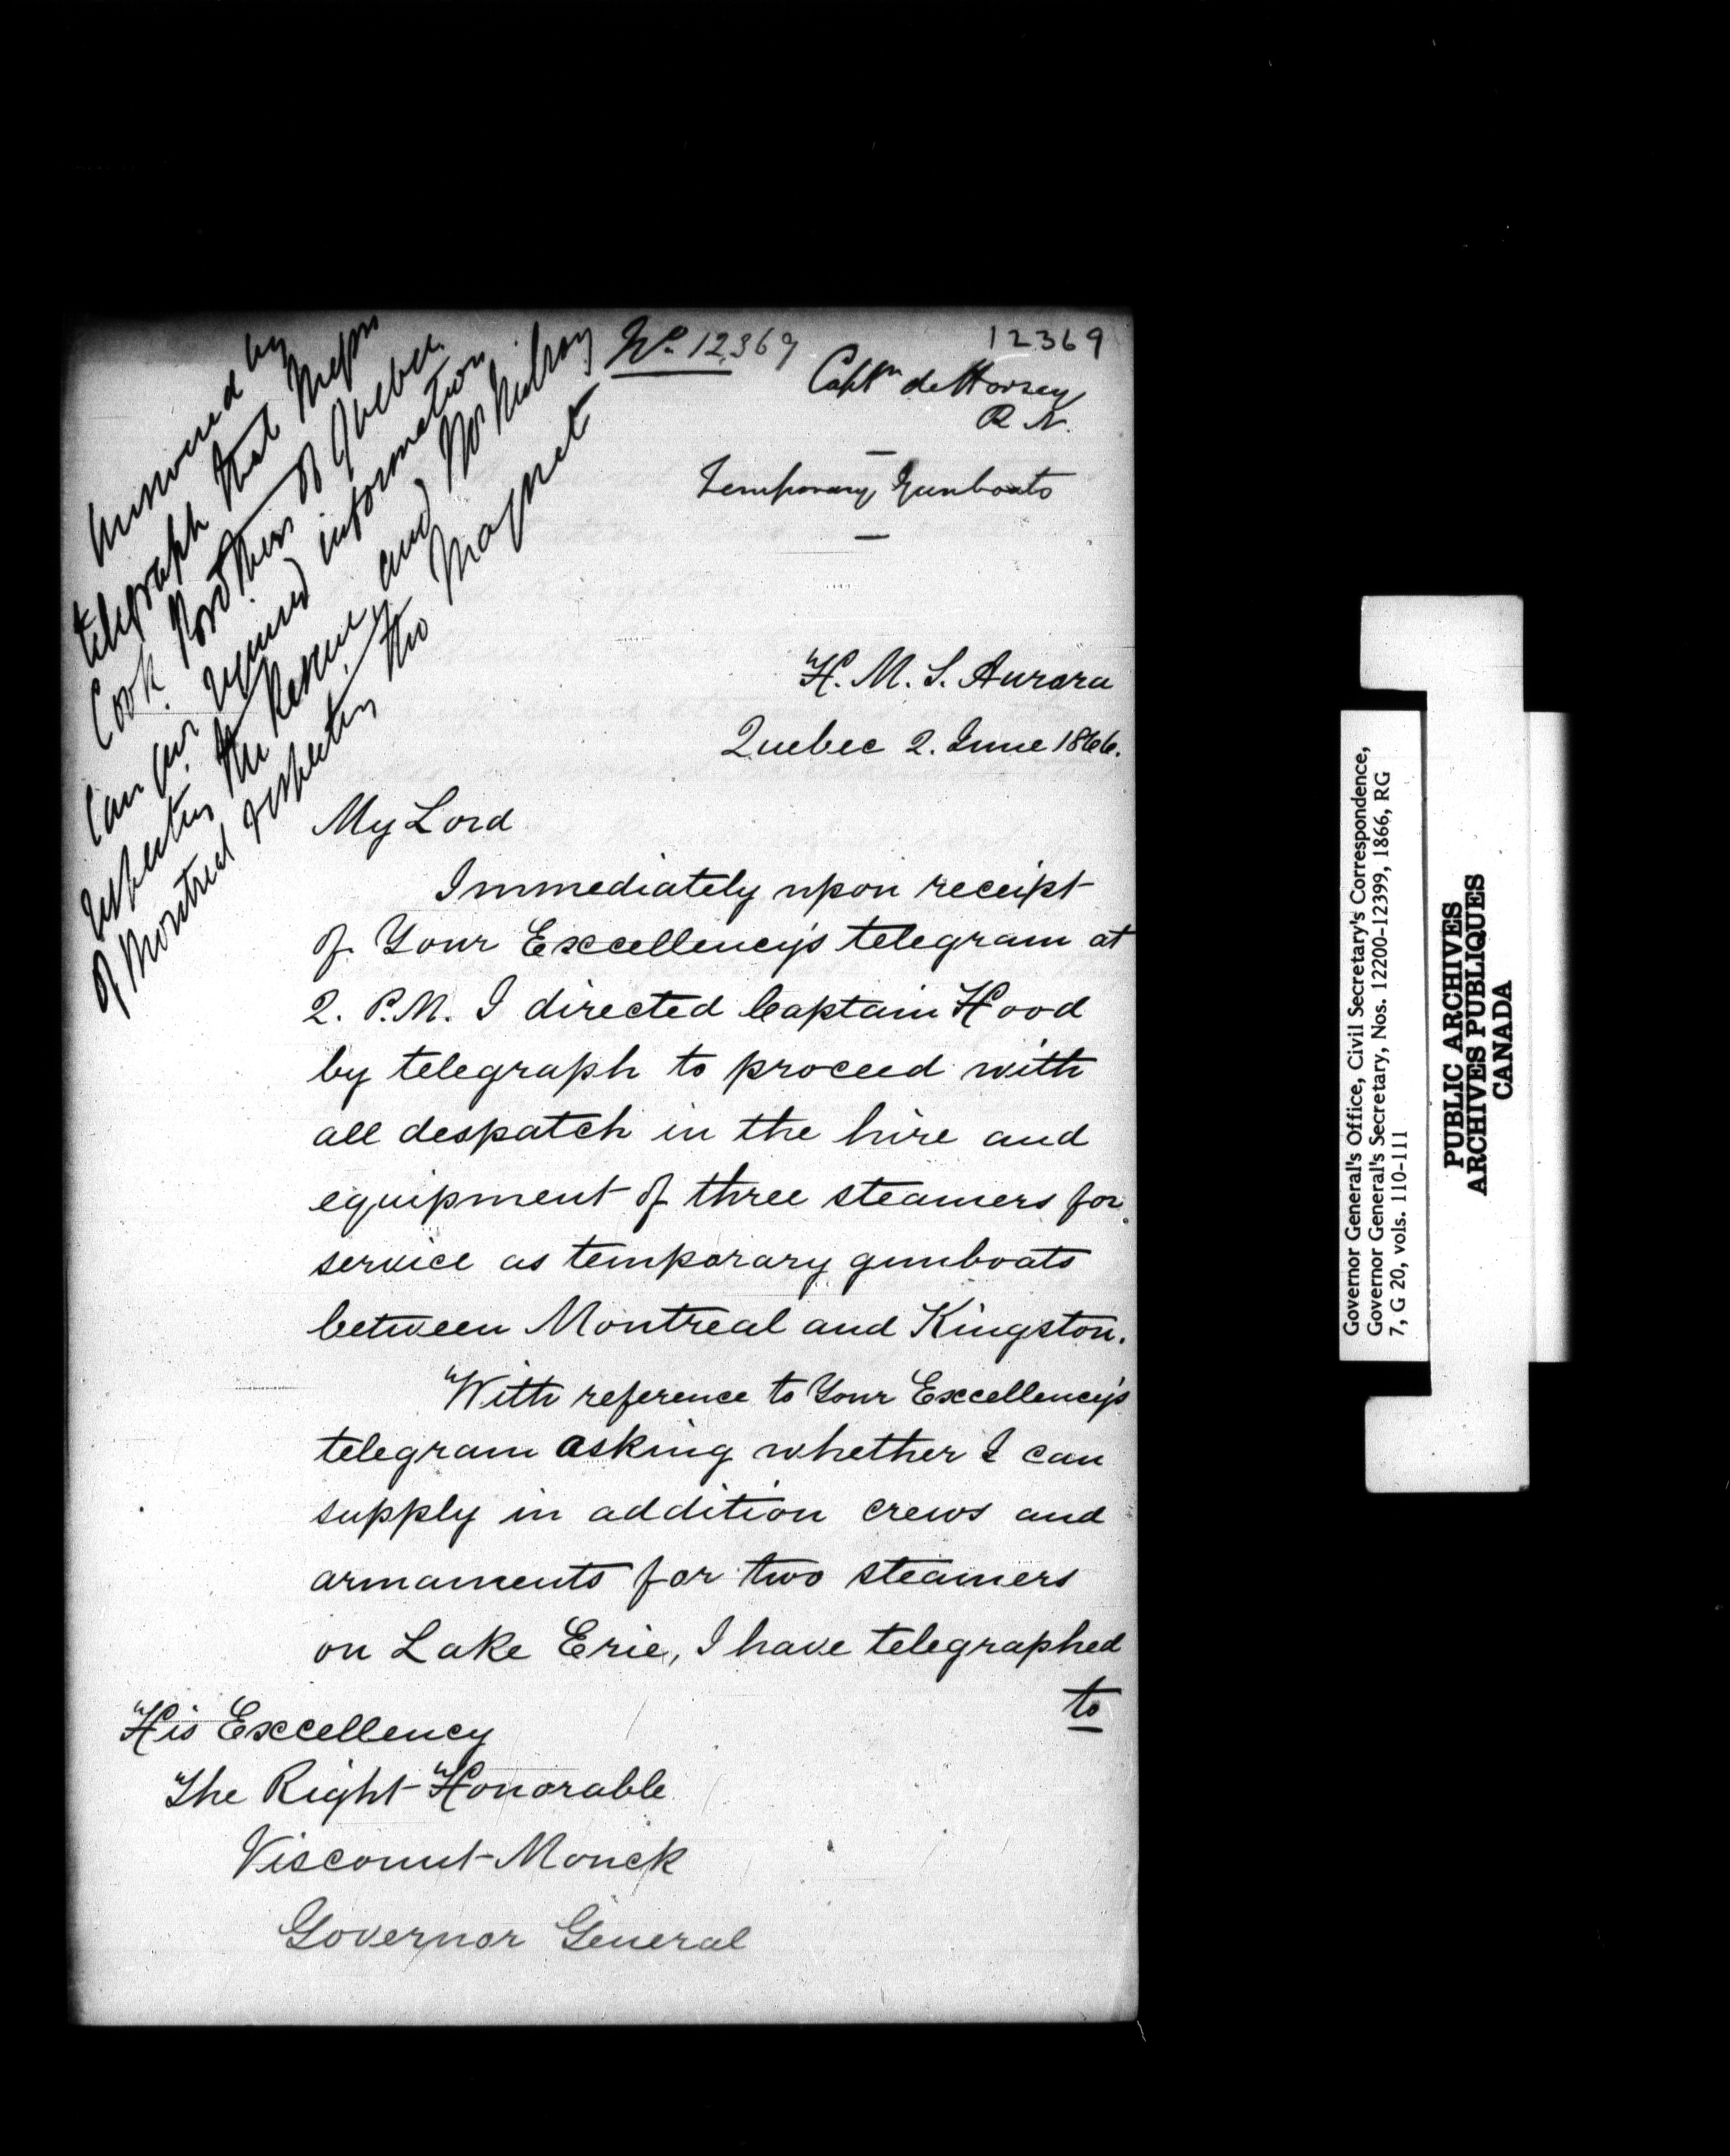 No. 12369
12369
Captn de Horsey
R N.
Temporary Gunboats
Answered by
telegraph that Messrs
Cook Brothers of Quebec
can give required information
respecting the Rescue and Mr
of Montreal respecting the Magnet
H. M. S. Aurora
Quebec 2. June 1866.
My Lord
Immediately upon receipt
of Your Excellency's telegram at
2. P.M. I directed Captain Hood
by telegraph to proceed with
all despatch in the hire and
equipment of three steamers for
service as temporary gunboats
between Montreal and Kingston.
With reference to Your Excellency's
telegram asking whether I can
supply in addition crews and
armaments for two steamers
on Lake Erie, I have telegraphed
to
His Excellency
The Right Honorable
Viscount Monck
Governor General
Governor General's Office, Civil Secretary's Correspondence,
Governor General's Secretary, Nos. 12200-12399, 1866, RG
7, G 20, vols. 110-111
PUBLIC ARCHIVES
ARCHIVES PUBLIQUES
CANADA